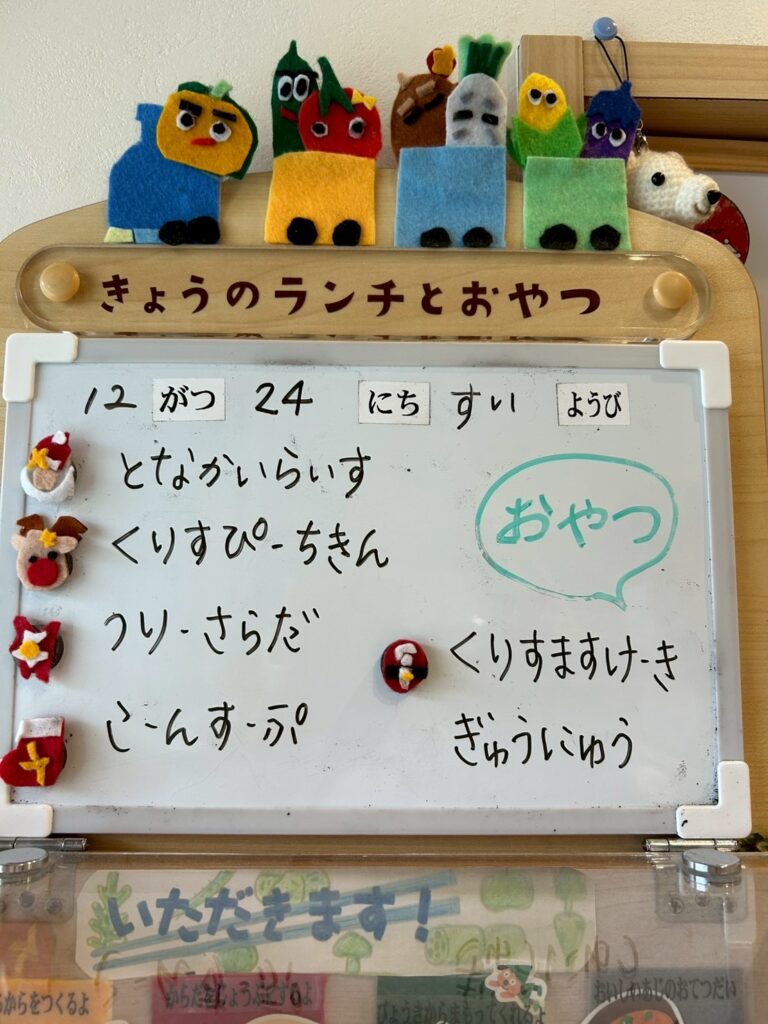 きょうのランチとおやつ
12 がつ 24 にち すい ようび
となかいらいす
くりすぴーちきん
つりーさらだ
こーんすーぷ
おやつ
くりすますけーき
ぎゅうにゅう
いただきます!
からをつくるよ
からだをじょうぶにするよ
びょうきからまもってくれるよ
おいしいあじのおてつだい